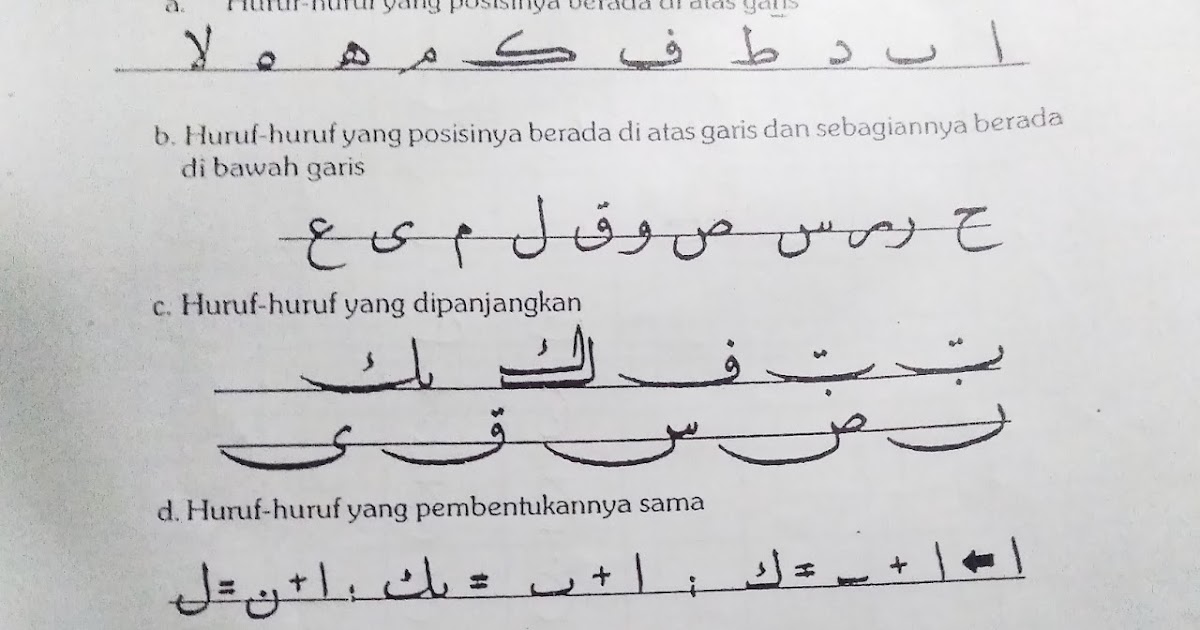 a. Huruf-huruf yang posisinya berada di atas garis
ا ٮ د ط ف ک م ھ ه لا
b. Huruf-huruf yang posisinya berada di atas garis dan sebagiannya berada
di bawah garis
ح ر س ص و ق ل م ى ع
c. Huruf-huruf yang dipanjangkan
ف ك ٮك
ں ص س ق ى
d. Huruf-huruf yang pembentukannya sama
ا ← ا + ـ = ك ; ا + ٮ = ٮك ; ا + ن = ل